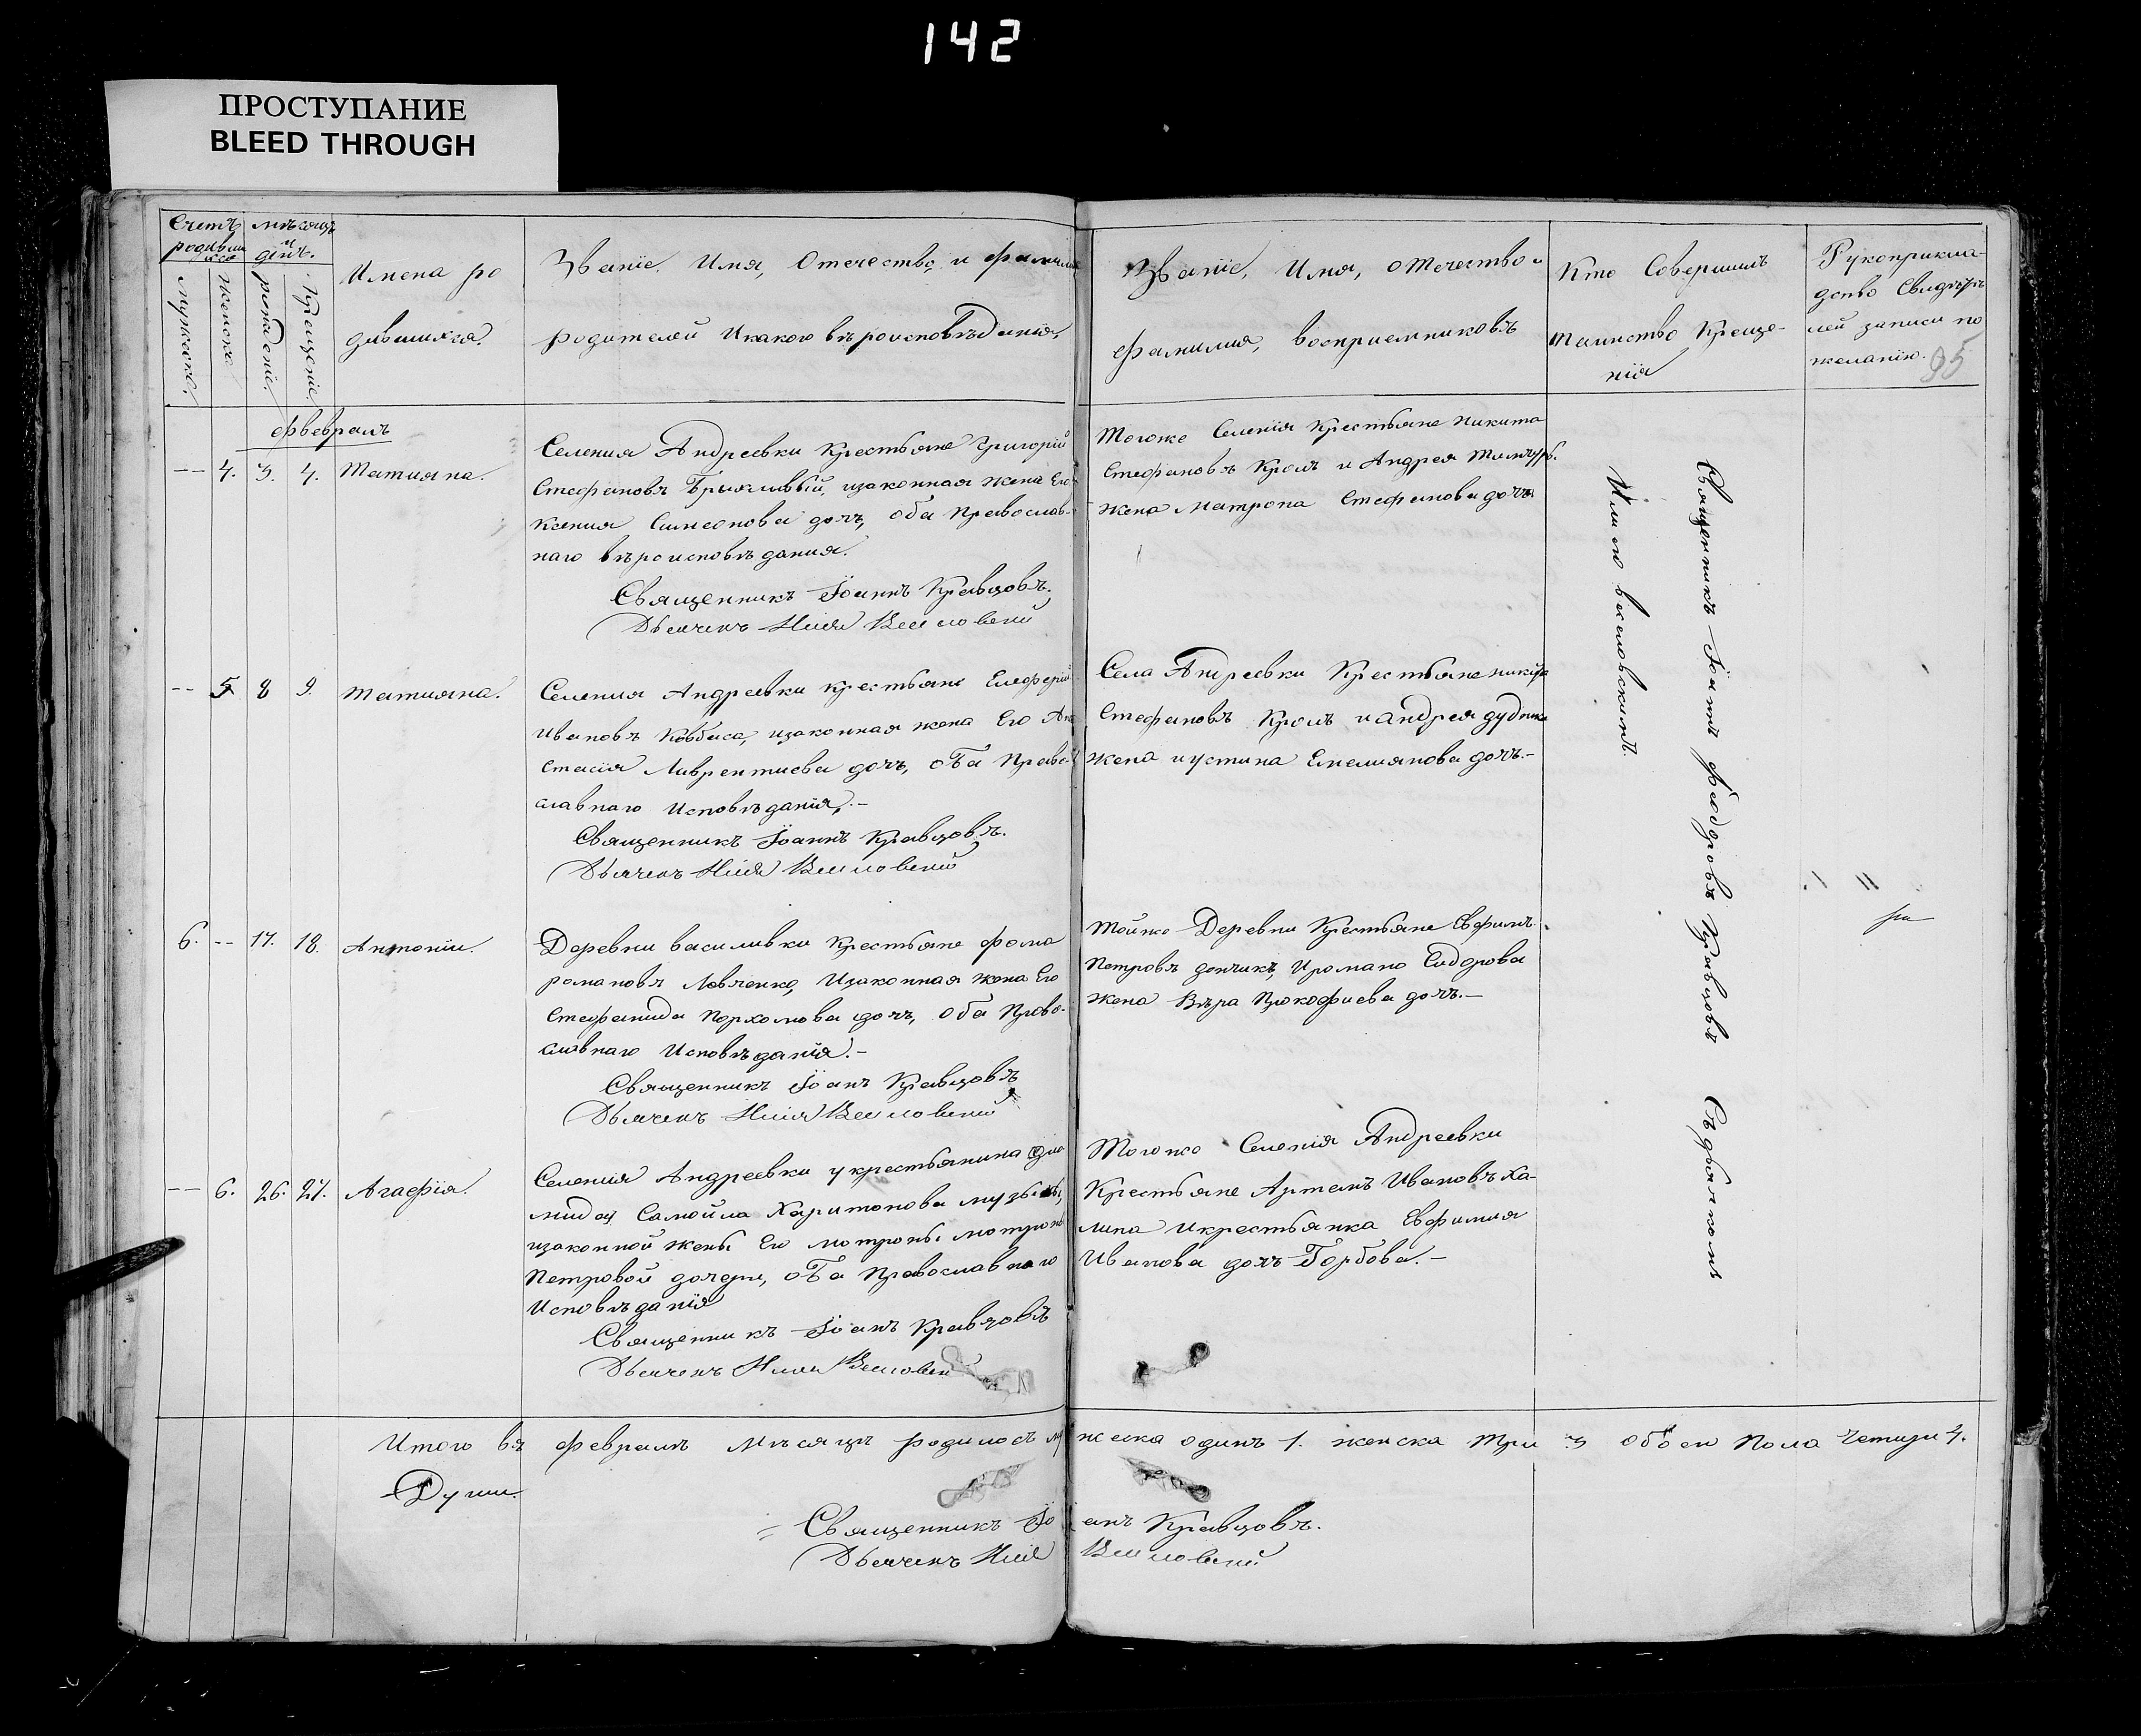 142
ПРОСТУПАНИЕ
BLEED THROUGH
Счетъ родивши
мѣсяцъ и день.
мужеска.
женска.
рожденіе.
Крещеніе.
Имена ро
дившихся.
Званіе, Имя, Отечество, и фамилія
родителей Икакого вѣроисповѣданія,
Званіе, Имя, отечество и
фамилия, восприемниковъ
Кто Совершилъ
таинство Креще-
нія
Рукоприкла-
дство Свидѣте
лей записи по
желанію.
95
февраль
-- 4. 3. 4. Татияна.
Селения Андреевки Крестьяне Григорій
Стефановъ изаконная жена Его
Ксения Симеонова дочъ, оба Православ-
наго вѣроисповѣдания.
Священникъ Іоаннъ Кравцовъ.
Дьячекъ Илія
Тогоже Селенія Крестьяне Никита
Стефановъ Кроль и Андрея
жена Матрона Стефанова дочъ
-- 5 8 9. Татияна.
Селения Андреевки крестьяне Елефери
Ивановъ Ковбаса, изаконная жена Его Ана
стасія Лаврентиева дочъ, оба Право
славнаго Исповѣданія,.-
Священникъ Іоаннъ Кравцовъ.
Дьячекъ Илія
Села Андреевки Крестьяне никита
Стефановъ Кроль и андрея дудника
жена иустина Емелиянова дочъ.-
6. -- 17. 18. Антоній.
Деревни василивки крестьяне фома
романовъ Левченко, Изаконная жена Его
Стефанида Пархомова дочъ, оба Право-
славнаго Исповѣданія.-
Священникъ Іоанъ Кравцовъ
Дьячекъ Илія
Тойже Деревни Крестьяне Евфимъ
Петровъ Ирамана Сидорова
жена Вѣра Прокофиева дочъ.-
-- 6. 26. 27. Агафія.
Селения Андреевки у крестьянина
Самойла Харитонова музыки,
изаконной жены Его мотроны мотроны
Петровой дочери, оба Православнаго
Исповѣданія
Священникъ Іоанъ Кравцовъ
Дьячекъ Илія
Тогоже Селенія Андреевки
Крестьяне Артемъ Ивановъ Ха-
липа Икрестьянка Евфимия
Иванова дочъ Горбова.-
Священникъ Іоаннъ Феодоровъ Кравцовъ Съ дьячкомъ
Итого въ февралѣ мѣсяцѣ родилось мужеска одинъ 1. женска три 3 обоего Пола Четыри 4.
Души.
Священникъ Іоанъ Кравцовъ.
Дьячекъ Илія